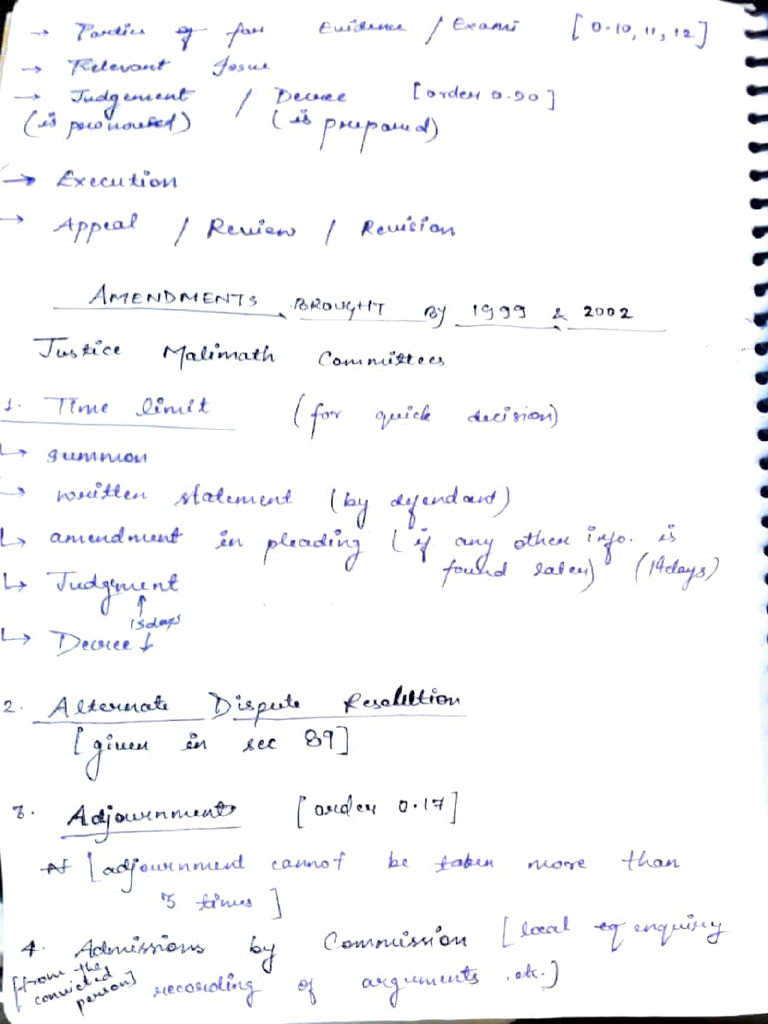 → Parties of for Evidence / Exami [O.10, 11, 12]
→ Relevant Issue
→ Judgement / Decree [order 0.20]
(is pronounced) (is prepared)
→ Execution
→ Appeal / Review / Revision
AMENDMENTS BROUGHT By 1999 & 2002
Justice Malimath Committees
1. Time limit (for quick decision)
↳ summon
↳ written statement (by defendant)
↳ amendment in pleading (if any other info. is
found later) (14days)
↳ Judgment
↑
15days
↳ Decree ↓
2. Alternate Dispute Resolution
[given in sec 89]
3. Adjournments [order 0.17]
[adjournment cannot be taken more than
3 times]
4. Admissions by Commission [local enquiry
[from the convicted person] recording of arguments, etc.]